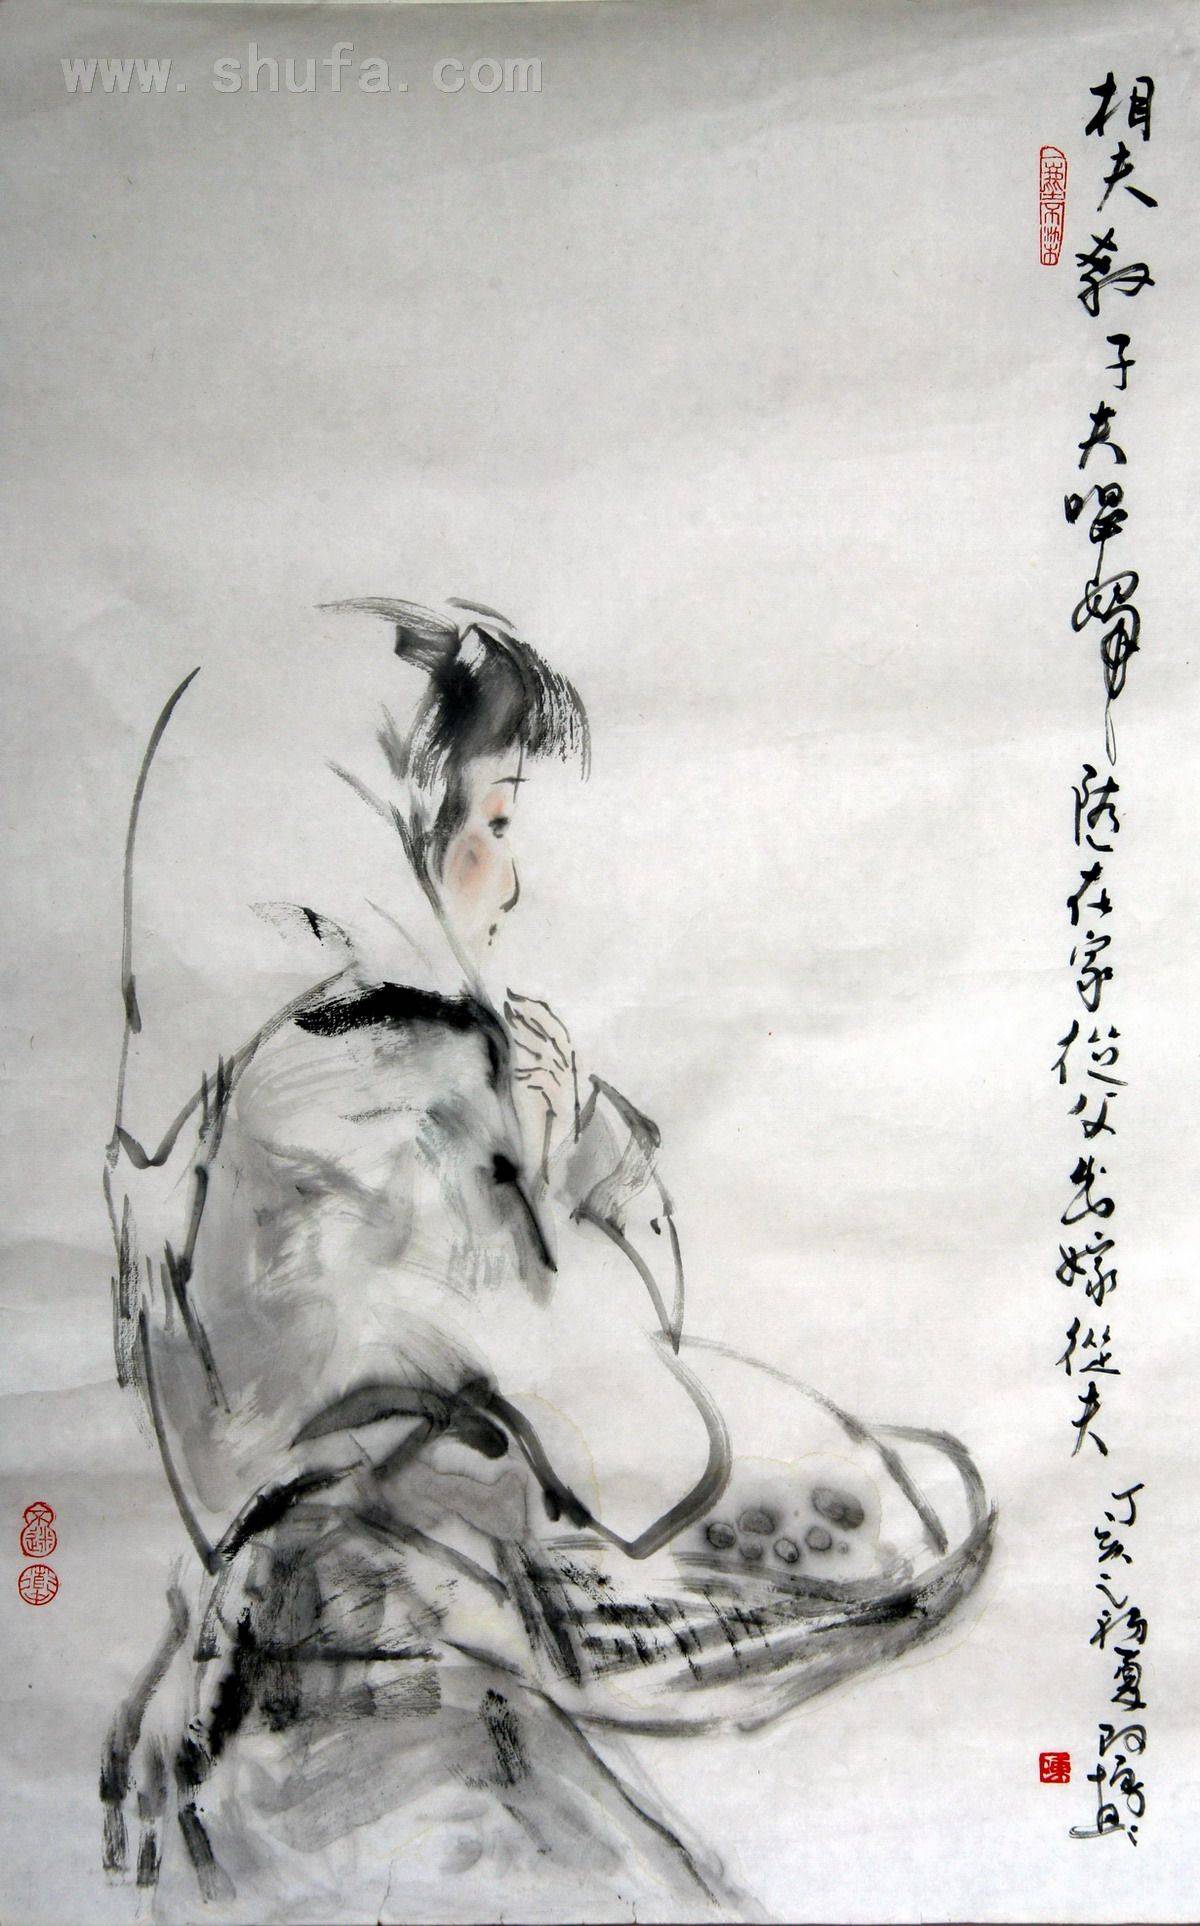 www.shufa.com
相夫教子夫唱婦随在家從父出嫁從夫
丁亥之初夏